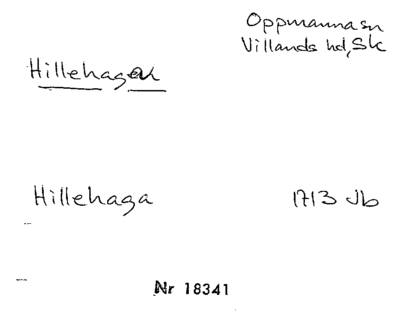 Oppmanna sn
Villands hd, Sk
Hillehagen
Hillehaga 1713 Jb
Nr 18341